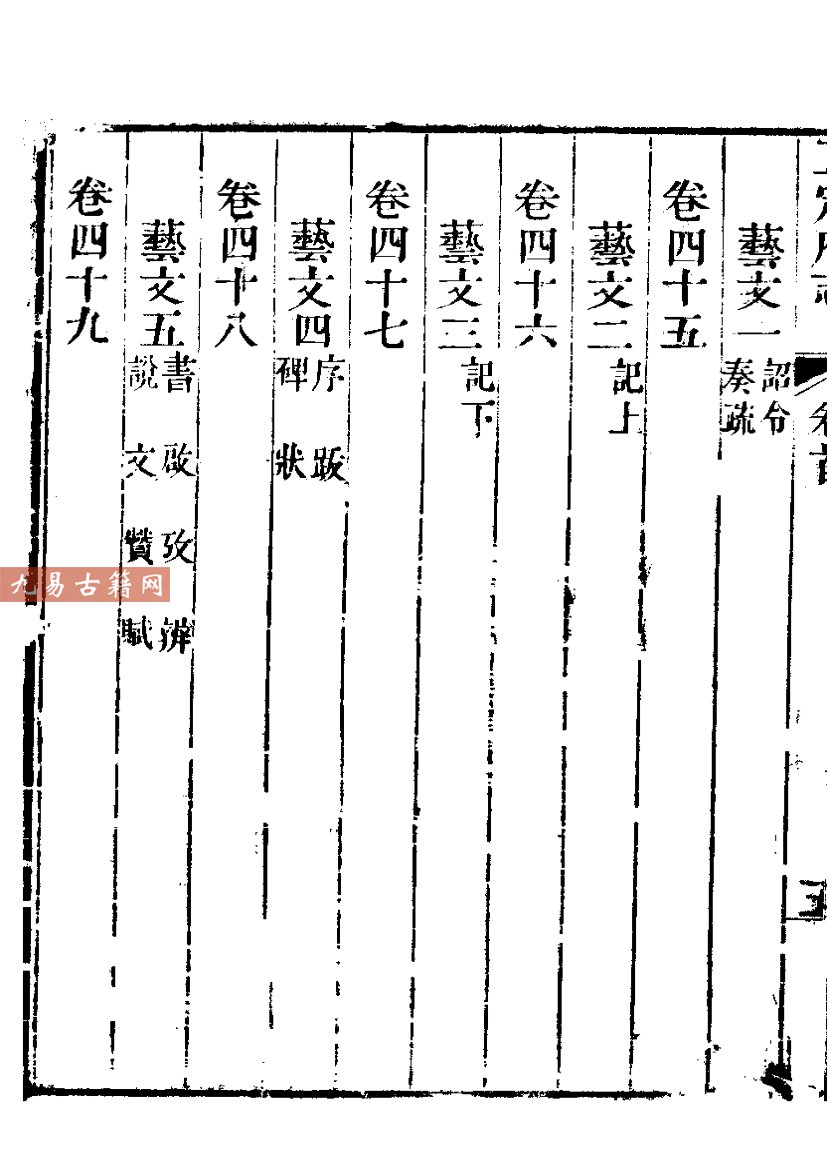 藝文一 詔令 奏疏
卷四十五
藝文二 記上
卷四十六
藝文三 記下
卷四十七
藝文四 序 跋 碑 狀
卷四十八
藝文五 書 啟 攷 辨 說 文 贊 賦
卷四十九
九易古籍网